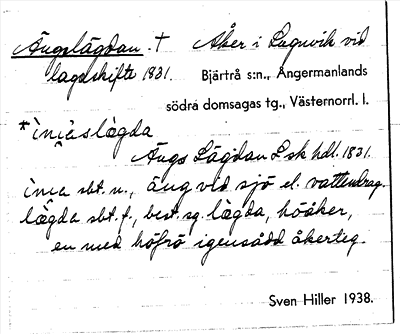 Ängslägdan. † Åker i Lugnvik vid
lagaskifte 1831. Bjärtrå s:n., Ångermanlands
södra domsagas tg., Västernorrl. l.
Ängs Lägdan Lsk hdl. 1831.
sbt. n., äng vid sjö el. vattendrag.
lægda sbt. f., best. sg. lægda, höåker,
en med höfrö igensådd åkerteg.
Sven Hiller 1938.